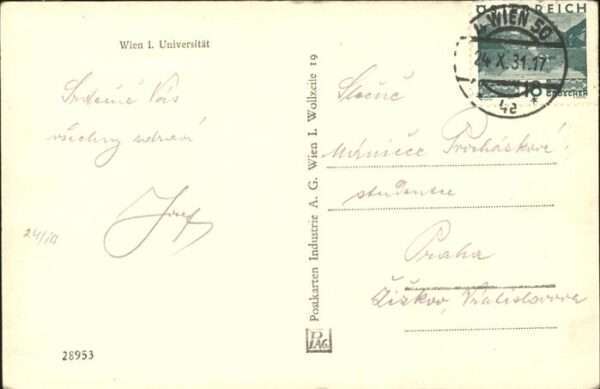 Wien I. Universität
Srdečně Vás
všechny zdraví
Josef
24/10
28953
Postkarten Industrie A. G. Wien I. Wollzeile 19
PIAG
ÖSTERREICH
WIEN 50
24.X.31.17
4a
18 GROSCHEN
Slečně
Mánice Procháskové
studentce
Praha
Žižkov, Vratislavova